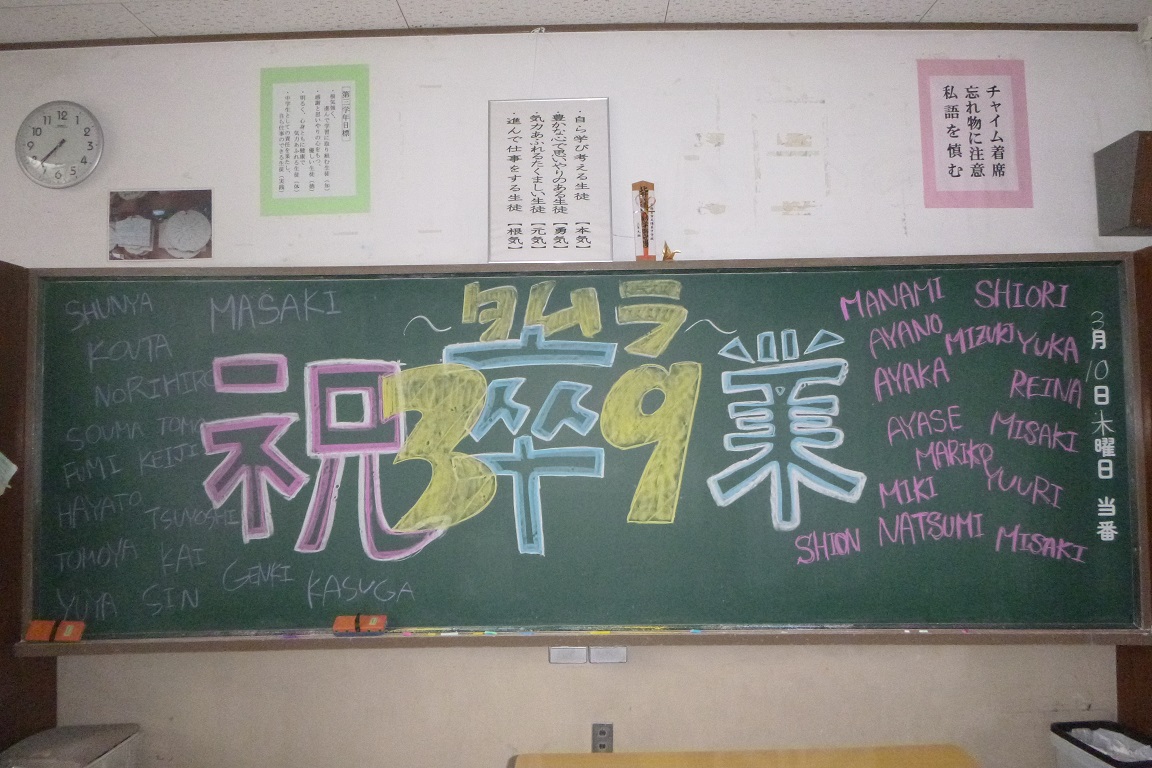 12
1
2
3
4
5
6
7
8
9
10
11
【第三学年目標】
・自ら学び考える生徒 【本気】
・豊かな心で思いやりのある生徒 【勇気】
・気力あふれるたくましい生徒 【元気】
・進んで仕事をする生徒 【根気】
チャイム着席
忘れ物に注意
私語を慎む
SHUNYA
MASAKI
KOUTA
NORIHIRO
SOUMA TOMO
FUMI KEIJI
HAYATO
TSUYOSHI
TOMOYA KAI
GENKI
YUYA SIN
KASUGA
~タムラ~
祝卒業
39
MANAMI SHIORI
AYANO MIZUKI YUKA
AYAKA REINA
AYASE MISAKI
MARIKO
MIKI YUURI
SHION NATSUMI MISAKI
3月10日木曜日 当番